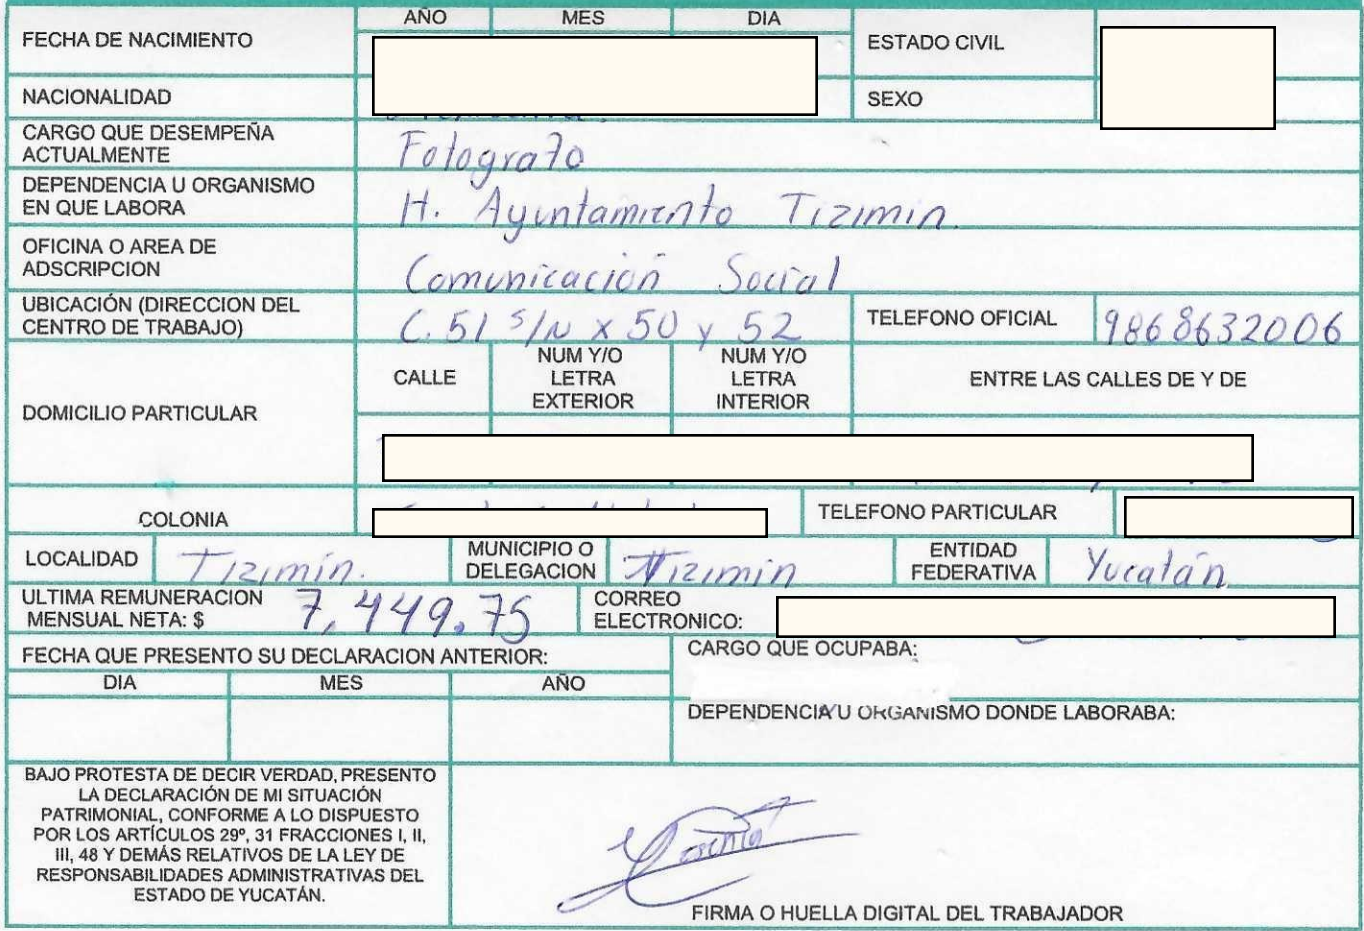 AÑO MES DIA
FECHA DE NACIMIENTO
ESTADO CIVIL
NACIONALIDAD
SEXO
CARGO QUE DESEMPEÑA
ACTUALMENTE
Fotografo
DEPENDENCIA U ORGANISMO
EN QUE LABORA
H. Ayuntamiento Tizimin.
OFICINA O AREA DE
ADSCRIPCION
Comunicación Social
UBICACIÓN (DIRECCION DEL
CENTRO DE TRABAJO)
C. 51 S/N x 50 y 52
TELEFONO OFICIAL
9868632006
DOMICILIO PARTICULAR
CALLE
NUM Y/O
LETRA
EXTERIOR
NUM Y/O
LETRA
INTERIOR
ENTRE LAS CALLES DE Y DE
COLONIA
TELEFONO PARTICULAR
LOCALIDAD
Tizimín.
MUNICIPIO O
DELEGACION
Tizimin
ENTIDAD
FEDERATIVA
Yucatán
ULTIMA REMUNERACION
MENSUAL NETA: $
7,449.75
CORREO
ELECTRONICO:
FECHA QUE PRESENTO SU DECLARACION ANTERIOR:
DIA MES AÑO
CARGO QUE OCUPABA:
DEPENDENCIA U ORGANISMO DONDE LABORABA:
BAJO PROTESTA DE DECIR VERDAD, PRESENTO
LA DECLARACIÓN DE MI SITUACIÓN
PATRIMONIAL, CONFORME A LO DISPUESTO
POR LOS ARTÍCULOS 29º, 31 FRACCIONES I, II,
III, 48 Y DEMÁS RELATIVOS DE LA LEY DE
RESPONSABILIDADES ADMINISTRATIVAS DEL
ESTADO DE YUCATÁN.
FIRMA O HUELLA DIGITAL DEL TRABAJADOR